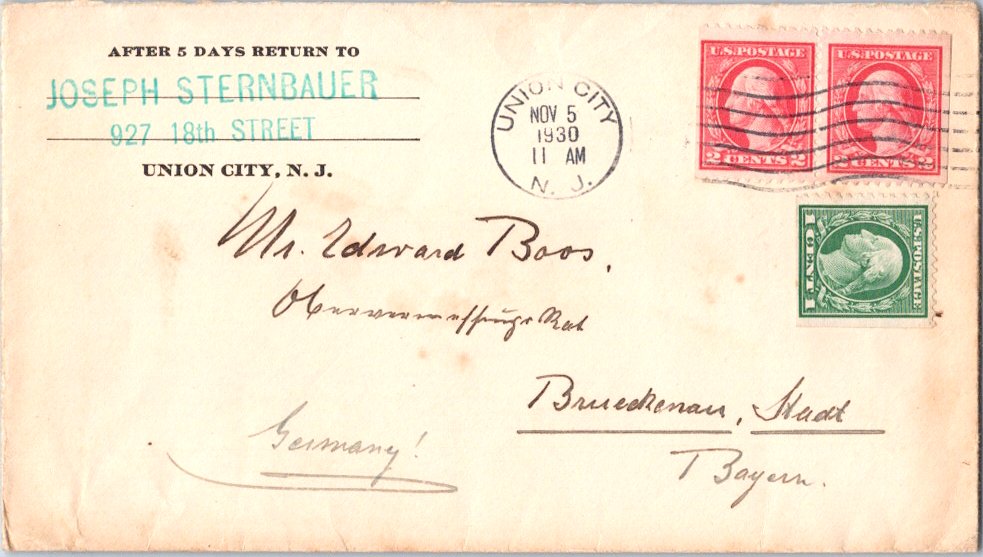 AFTER 5 DAYS RETURN TO
JOSEPH STERNBAUER
927 18th STREET
UNION CITY, N. J.
UNION CITY
NOV 5
1930
11 AM
N. J.
U.S. POSTAGE
2 CENTS 2
U.S. POSTAGE
2 CENTS 2
U.S. POSTAGE
1 CENT 1
Mr. Edward Boos,
Obervermessungs Rat
Brueckenau, Stadt
Bayern.
Germany!